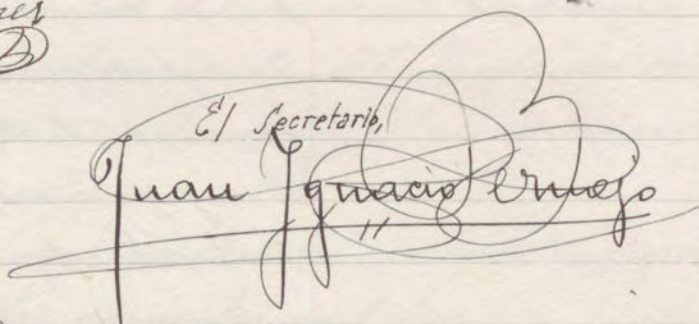 El Secretario,
Juan Ignacio Bermejo